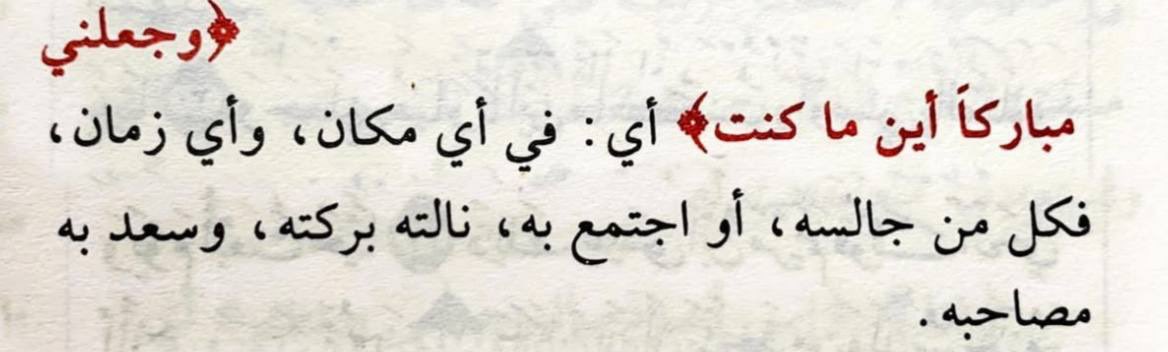 ﴿وجعلني
مباركاً أين ما كنت﴾ أي: في أي مكان، وأي زمان،
فكل من جالسه، أو اجتمع به، نالته بركته، وسعد به
مصاحبه.